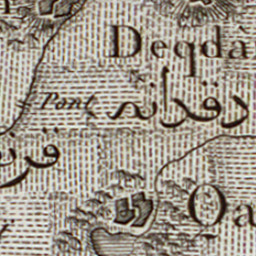 Deqdâ
Pont
دقدانه
Qa